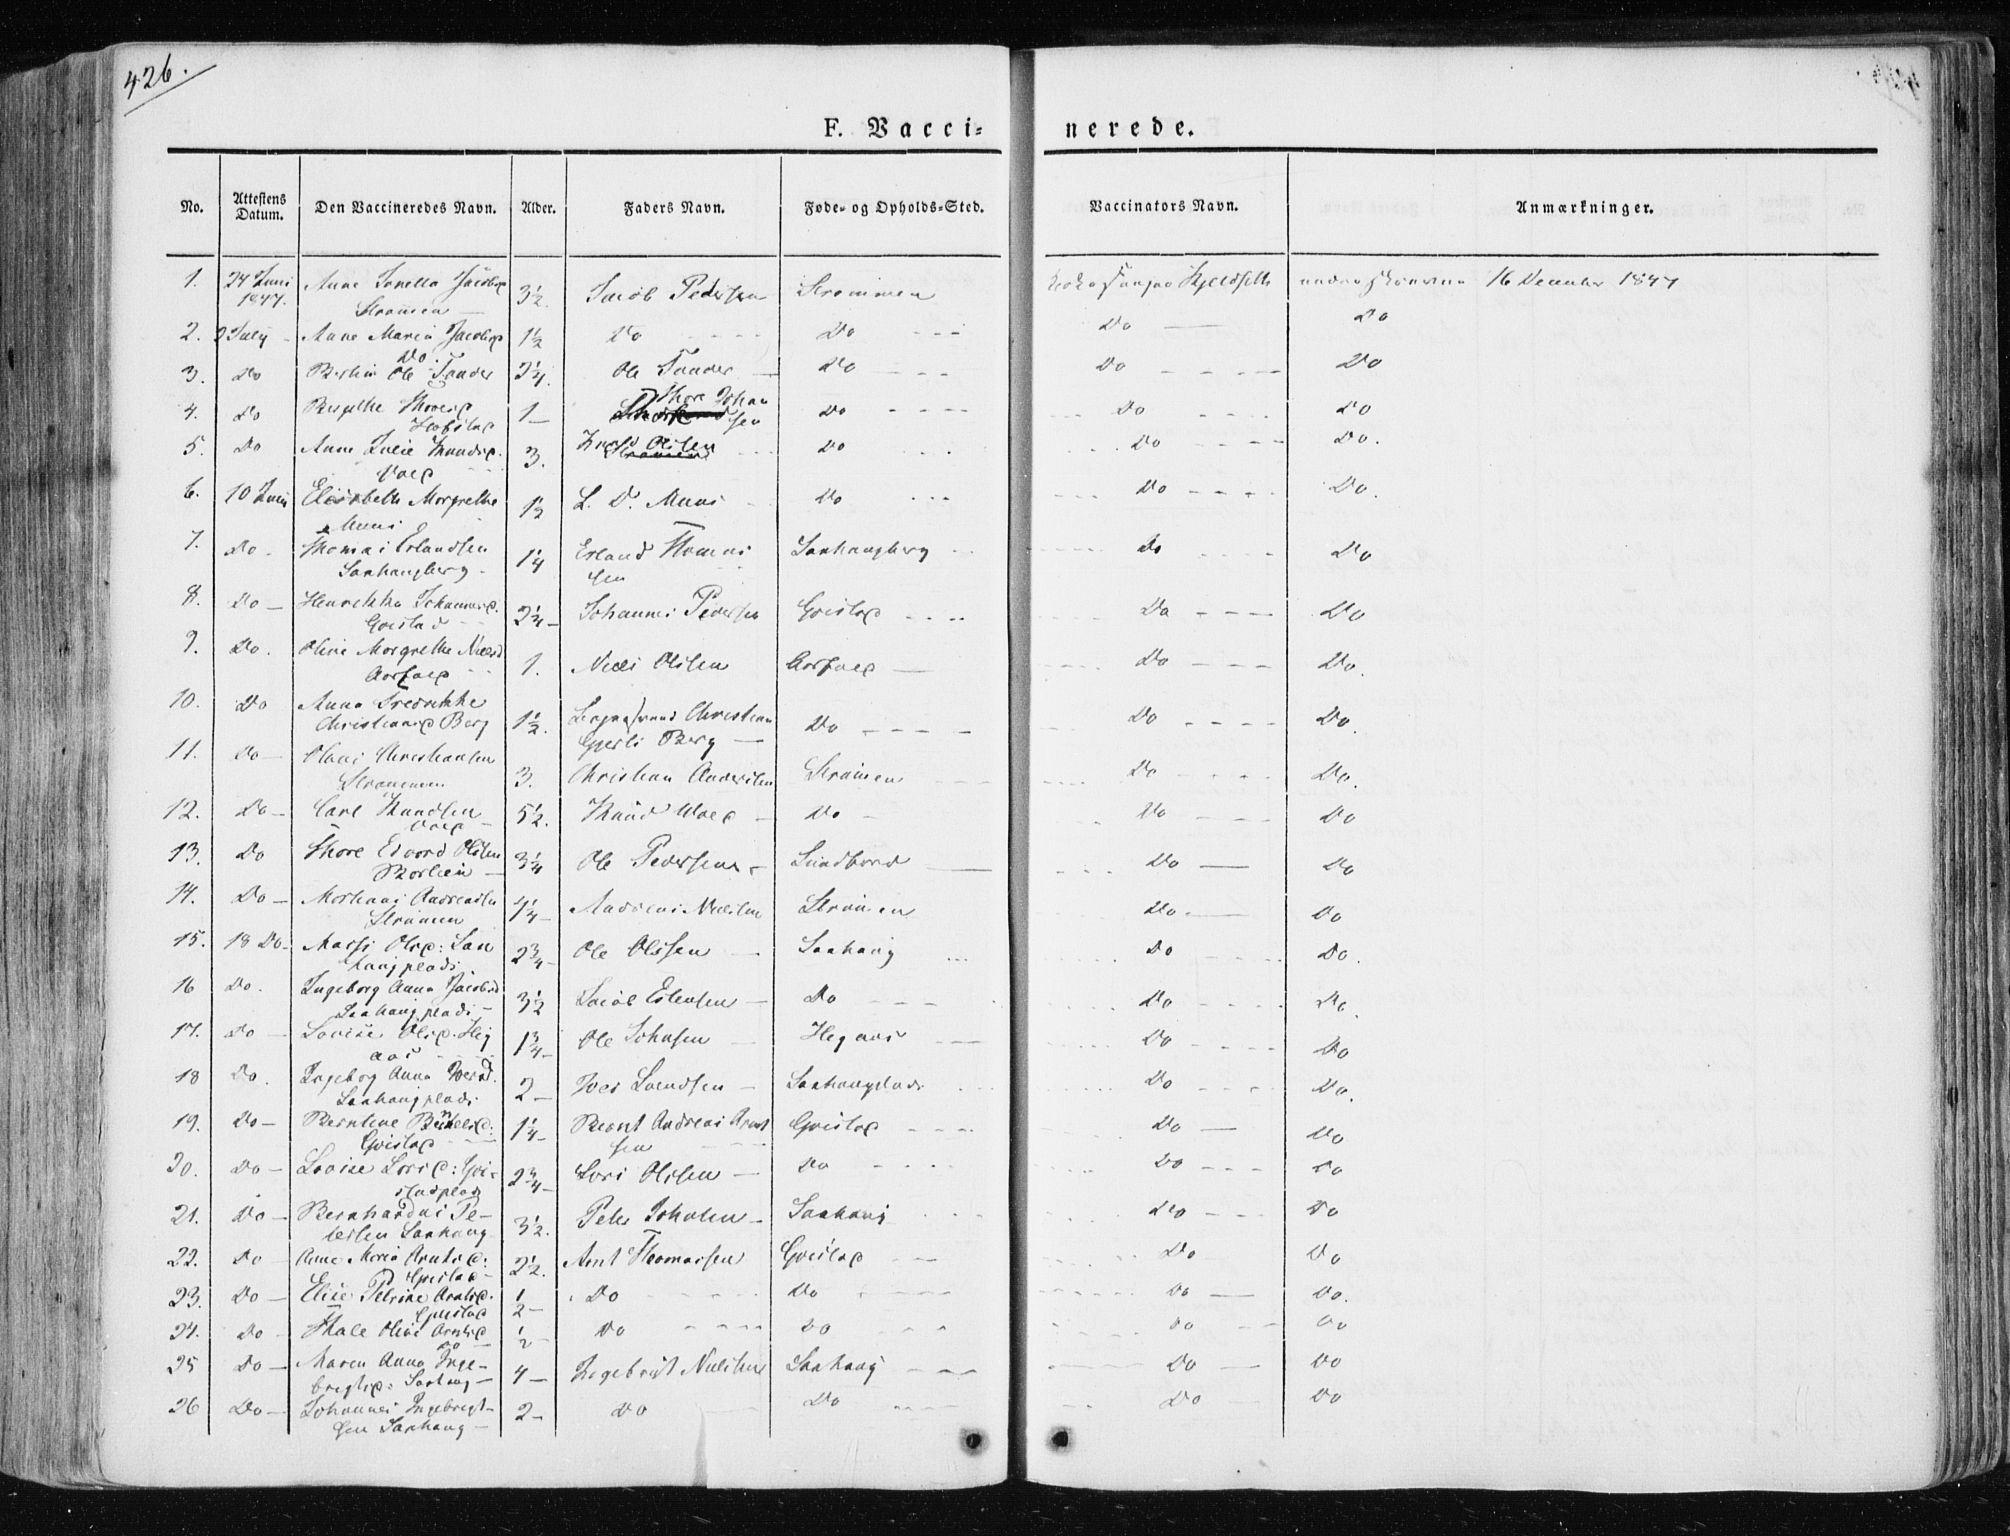 426.
F. Vacci=nerede.
No. Attestens Datum. Den Vaccineredes Navn. Alder. Faders Navn. Føde- og Opholds-Sted. Vaccinators Navn. Anmærkninger.
1. 24 Juni 1847. Anne Jacobsd Strømmen 3½ Jacob Pedersen Strømmen 16 December 1847
2. 2 July Anne Maria Jacobsd Do 1½ Do Do Do Do
3. Do Ole Tander 2¼. Ole Tander Do Do Do
4. Do Thoresd 1 Thore Johansen Do Do Do
5. Do Anne Julie Knudsd. 3. Knud Olsen Do Do Do.
6. 10 Juni Elisabeth Morgrethe Muus 1½ L. D. Muus Do Do Do.
7. Do. Thomas Erlandsen Saxhaugberg 1¼ Erland Thomassen Saxhaugberg Do Do
8. Do Johannesd. Gvistad 2¼ Johannes Pedersen Gvistad Do Do
9. Do. Oline Morgrethe Nielsd 1. Niels Olsen Do Do.
10. Do Anna Fredrikke Christiansd Berg 1½. Christian Berg Do Do Do.
11. Do Christiansen Strømmen 3. Christian Andersen Strømen Do Do.
12. Do Carl Knudsen 5½. Knud Do Do Do
13. Do Thore Edvard Olsen 3¼ Ole Pedersen Sundbord Do Do
14. Do Andreassen Strømen 1¼ Andreas Nielsen Strømen Do Do
15. 18 Do Olsd: Saxhaugplads 2¾ Ole Olsen Saxhaug Do Do.
16 Do. Ingeborg Anna Jacobsd Saxhaugplads 3½ Jacob Estensen Do Do Do.
17. Do Lovise Olsd: Hegaas 1¾ Ole Johnsen Hegaas Do Do
18 Do. Ingeborg Anna Iversd. Saxhaugplads 2 Iver Svendsen Saxhaugplads Do Do.
19. Do Berntine Gvistad 1¼ Bernt Andreas Arentsen Gvistad Do Do
20. Do Lovise Larsd: Gvistadplads 2¾ Lars Olsen Do Do Do
21. Do Bernhardus Petersen Saxhaug 3½. Peter Johnsen Saxhaug Do Do
22. Do Anne Maria Arntsd: Gvistad 2½. Arnt Thomassen Gvistad Do Do
23. Do Elise Petrine Arntsd. Gvistad ½ Do Do Do Do.
24. Do Thale Oline Arntsd Do ½ Do Do Do Do
25 Do Maren Anna Ingebrigtsd: Saxhaug 4 Ingebrigt Nielsen Saxhaug Do Do
26 Do Johannes Ingebrigtsen Saxhaug 2 Do Do Do Do